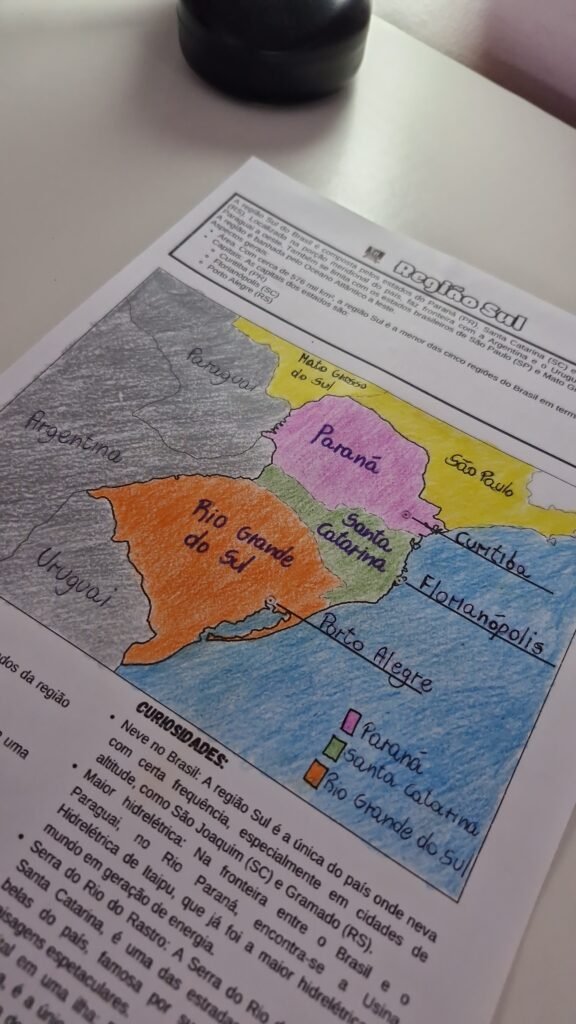 Região Sul
A região Sul do Brasil é composta pelos estados do Paraná (PR), Santa Catarina (SC) e
(RS). Localizada na porção meridional do país, faz fronteira com a Argentina e o Urugua
Paraguai a oeste. Também se limita com os estados brasileiros de São Paulo (SP) e Mato G
A região é banhada pelo Oceano Atlântico a leste.
Aspectos gerais:
• Área: Com cerca de 576 mil km², a região Sul é a menor das cinco regiões do Brasil em term
• Capitais: As capitais dos estados são:
• Curitiba (PR)
• Florianópolis (SC)
Porto Alegre (RS)
Paraguai
Mato Grosso
do Sul
Argentina
Paraná
São Paulo
Rio Grande
do Sul
Santa
Catarina
Curitiba
Uruguai
Florianópolis
Porto Alegre
Paraná
Santa Catarina
Rio Grande do Sul
ados da região
e uma
CURIOSIDADES:
• Neve no Brasil: A região Sul é a única do país onde neva
com certa frequência, especialmente em cidades de
altitude, como São Joaquim (SC) e Gramado (RS).
• Maior hidrelétrica: Na fronteira entre o Brasil e o
Paraguai, no Rio Paraná, encontra-se a Usina
Hidrelétrica de Itaipu, que já foi a maior hidrelétrica
mundo em geração de energia.
• Serra do Rio do Rastro: A Serra do Rio d
Santa Catarina, é uma das estradas
belas do país, famosa por su
aisagens espetaculares.
tal em uma ilha:
a, é a únic